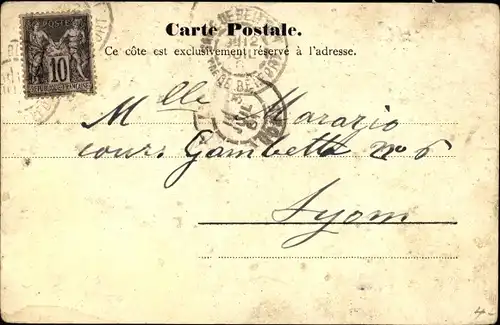 Carte Postale.
Ce côte est exclusivement réservé à l'adresse.
POSTE
10
REPUBLIQUE FRANÇAISE
Mlle Marazio
cours Gambetta no 6
Lyon
4-